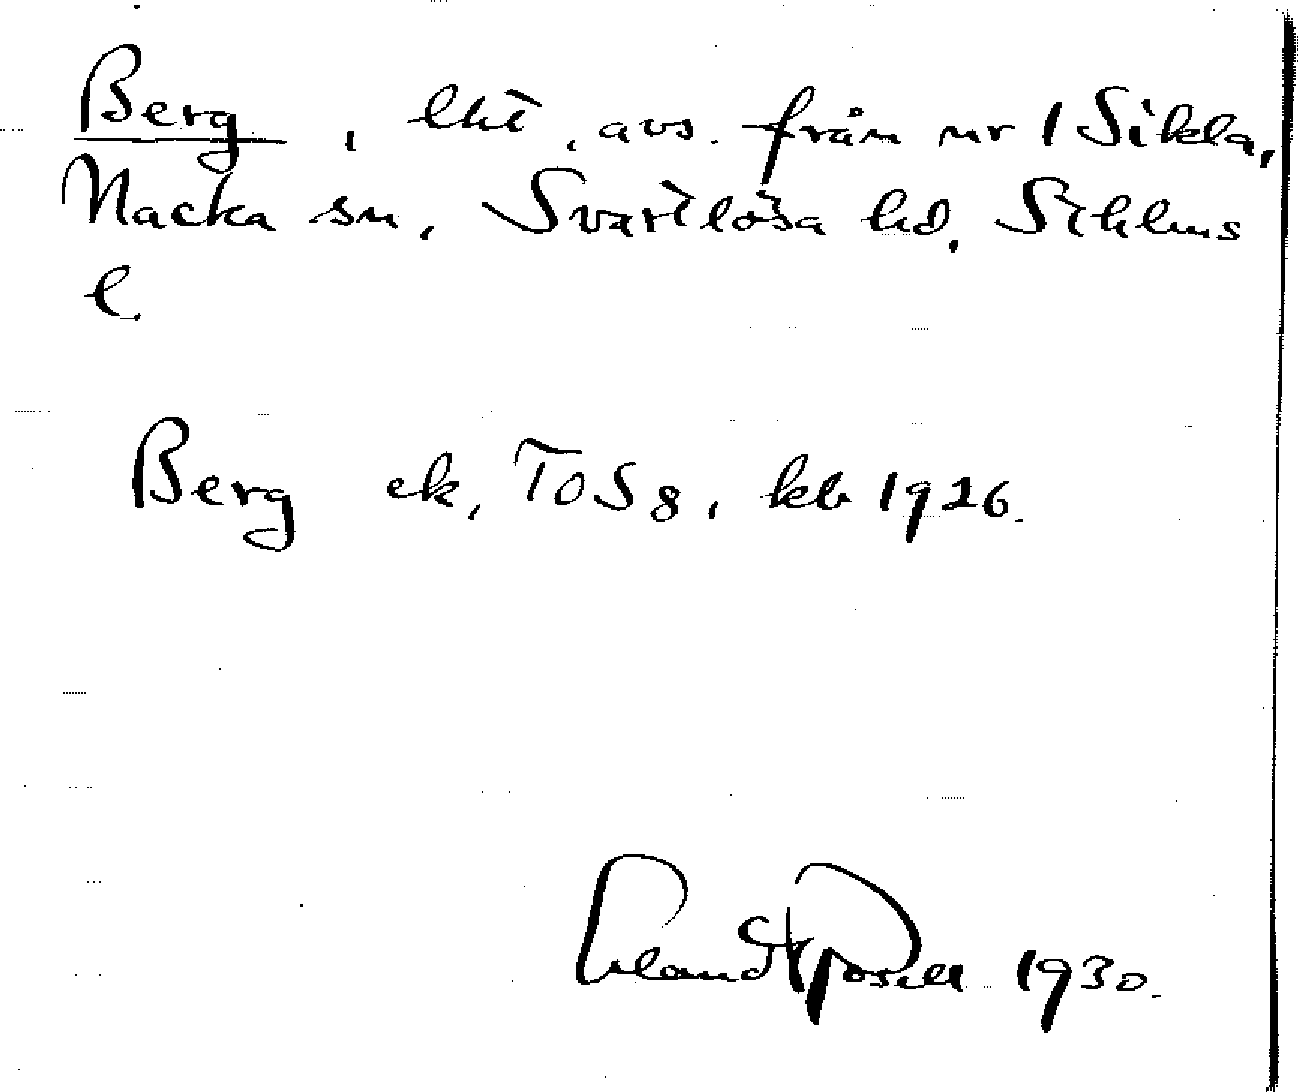 Berg, lht, avs. från nr 1 Sikla,
Nacka sn, Svartlösa hd, Sthlms
l.
Berg ek, TOSg, kb 1926.
Erland Rosell 1930.